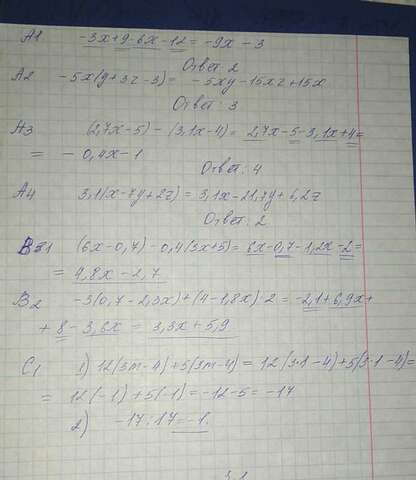 А1 -3х+9-6х-12=-9х-3
Ответ 2
А2 -5х(у+3z-3)= -5ху-15хz+15х
Ответ: 3
А3 (2,7х-5)-(3,1х-4)=2,7х-5-3,1х+4=
= -0,4х-1
Ответ: 4
А4 3,1(х-7у+2z)=3,1х-21,7у+6,2z
Ответ: 2
В1 (6х-0,7)-0,4(3х+5)=6х-0,7-1,2х-2=
= 4,8х-2,7
В2 -3(0,7-2,3х)+(4-1,8х)·2=-2,1+6,9х+
+8-3,6х=3,3х+5,9
С1 1) 12(3m-4)+5(3m-4)=12(3·1-4)+5(3·1-4)=
= 12(-1)+5(-1)=-12-5=-17
2) -17:17=-1.